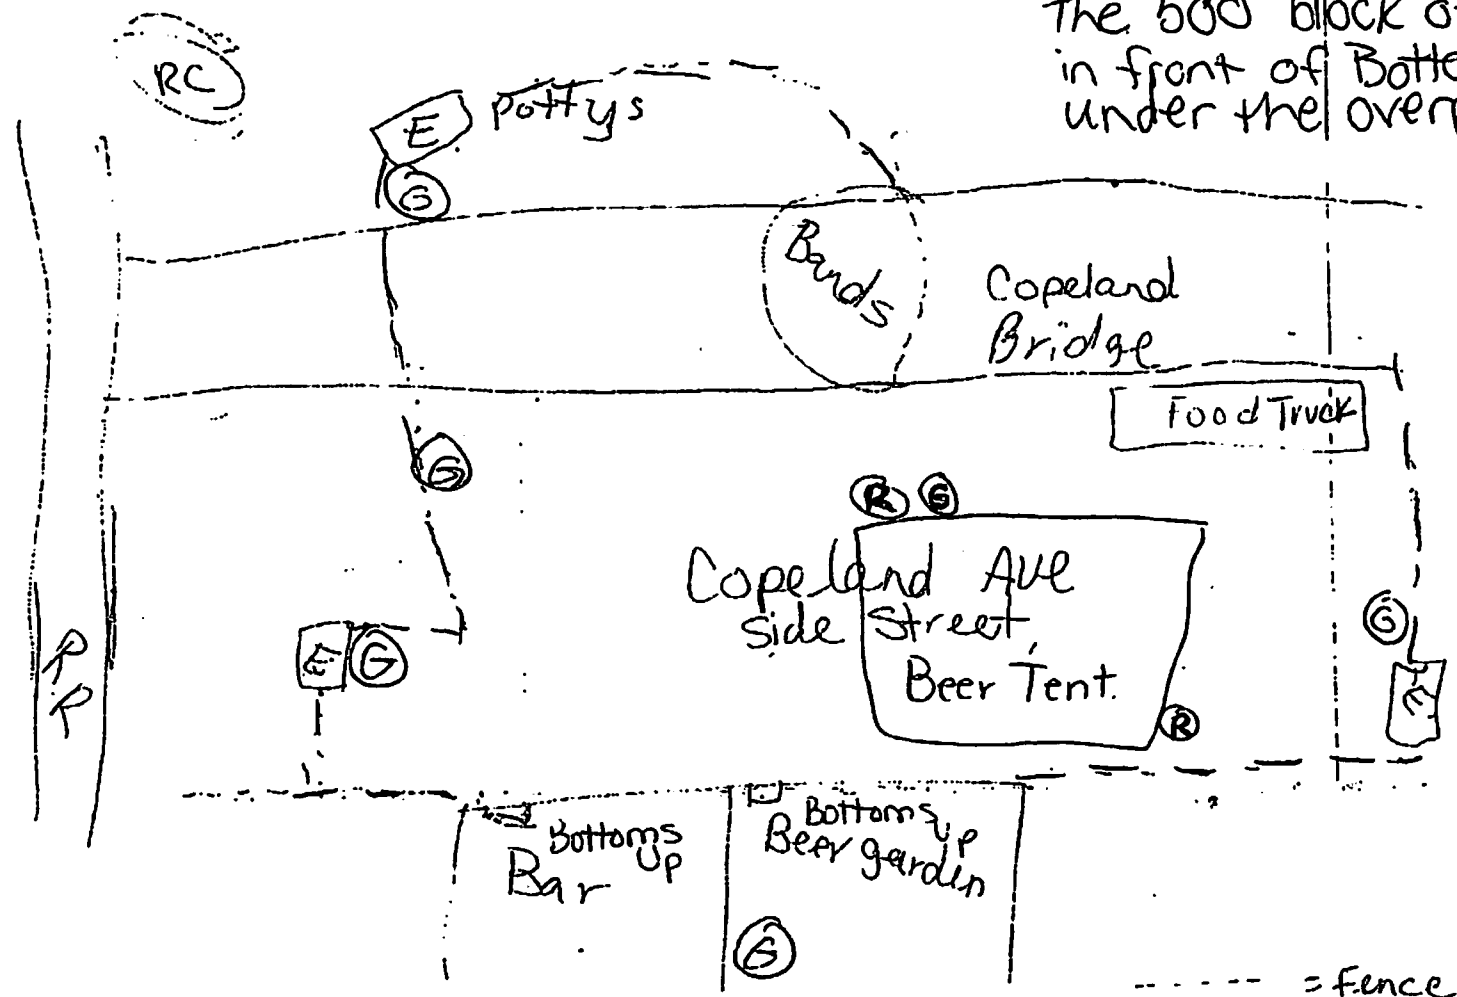 The 500 block o
in front of Botto
under the over
RC
E
pottys
G
Bands
Copeland
Bridge
Food Truck
G
R G
Copeland Ave
side Street,
Beer Tent.
G
E G
E
R
R R
Bottoms
Up
Bar
Bottoms
Up
Beer garden
G
= fence